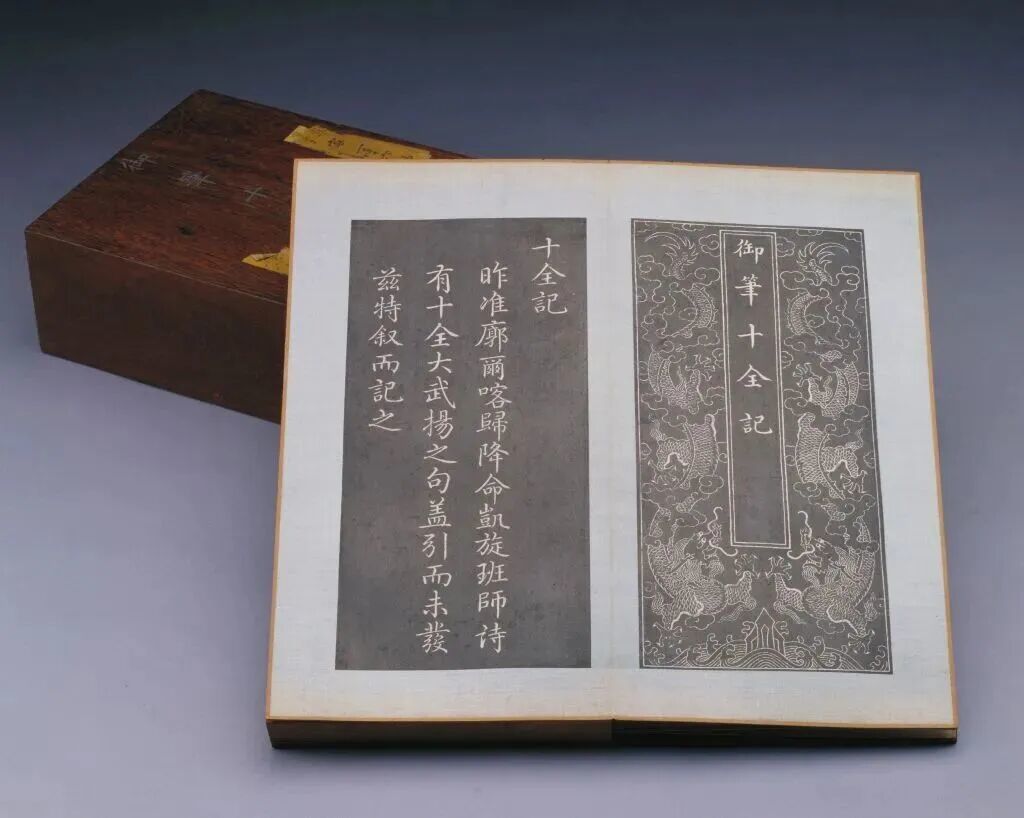 御筆十全記
十全記
昨准廓爾喀歸降命凱旋班師诗
有十全大武揚之句盖引而未發
兹特叙而記之
御筆十
御